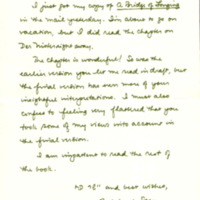 I just got my copy of A Bridge of Longing
in the mail yesterday. I'm about to go on
vacation, but I did read the chapter on
Der Nister right away.
The chapter is wonderful! So was the
earlier version you let me read in draft, but
the final version has even more of your
insightful interpretations. I must also
confess to feeling very flattered that you
took some of my views into account in
the final version.
I am impatient to read the rest of
the book.
and best wishes,